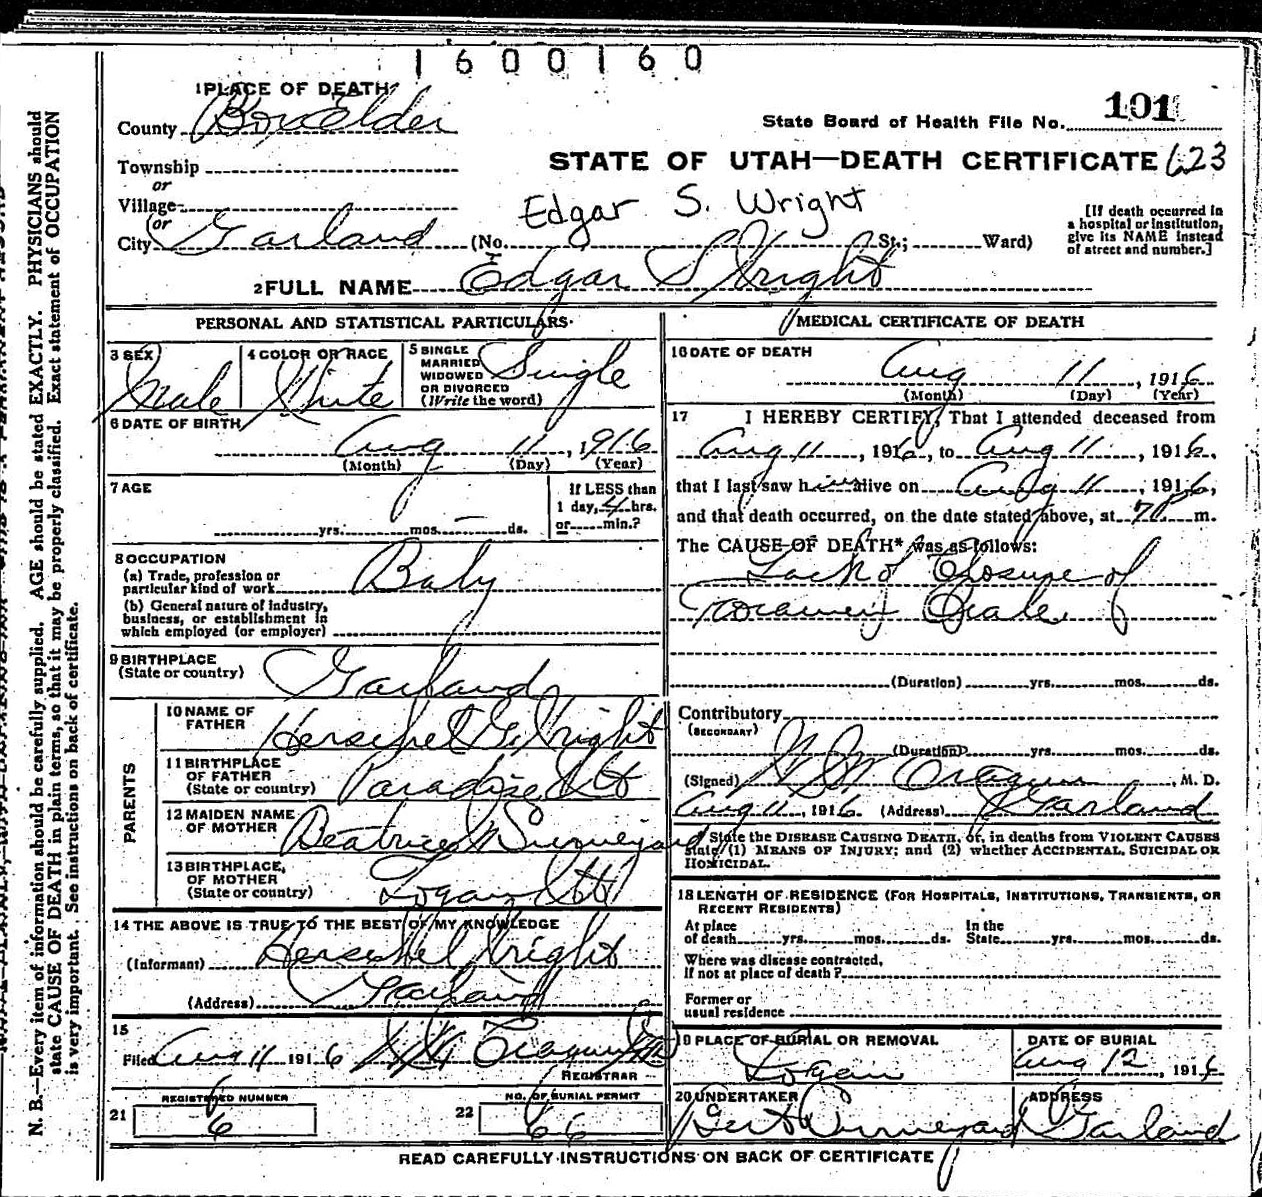 1600160
1 PLACE OF DEATH
County Box Elder
State Board of Health File No. 101
Township
or
STATE OF UTAH—DEATH CERTIFICATE 623
Village
or
Edgar S. Wright
City Garland (No. St.; Ward)
[If death occurred in
a hospital or institution,
give its NAME instead
of street and number.]
2 FULL NAME Edgar S Wright
PERSONAL AND STATISTICAL PARTICULARS
3 SEX Male
4 COLOR OR RACE White
5 SINGLE
MARRIED
WIDOWED
OR DIVORCED
(Write the word) Single
6 DATE OF BIRTH
Aug 11, 1916
(Month) (Day) (Year)
7 AGE
yrs. mos. ds.
If LESS than
1 day, 4 hrs.
or min.?
8 OCCUPATION
(a) Trade, profession or
particular kind of work Baby
(b) General nature of industry,
business, or establishment in
which employed (or employer)
9 BIRTHPLACE
(State or country) Garland
PARENTS
10 NAME OF
FATHER Herschel G. Wright
11 BIRTHPLACE
OF FATHER
(State or country) Paradise Ut
12 MAIDEN NAME
OF MOTHER Beatrice
13 BIRTHPLACE,
OF MOTHER
(State or country) Logan Ut
14 THE ABOVE IS TRUE TO THE BEST OF MY KNOWLEDGE
(Informant) Herschel Wright
(Address) Garland
15
Filed Aug 11 1916
REGISTRAR
21 REGISTERED NUMBER
6
22 NO. OF BURIAL PERMIT
66
MEDICAL CERTIFICATE OF DEATH
16 DATE OF DEATH
Aug 11, 1916
(Month) (Day) (Year)
17 I HEREBY CERTIFY, That I attended deceased from
Aug 11, 1916, to Aug 11, 1916,
that I last saw him alive on Aug 11, 1916,
and that death occurred, on the date stated above, at 7 P m.
The CAUSE OF DEATH* was as follows:
Lack of Closure of
Foramen Ovale
(Duration) yrs. mos. ds.
Contributory
(SECONDARY)
(Duration) yrs. mos. ds.
(Signed) M. D.
Aug 11, 1916 (Address) Garland
* State the DISEASE CAUSING DEATH, or, in deaths from VIOLENT CAUSES
state (1) MEANS OF INJURY; and (2) whether ACCIDENTAL, SUICIDAL OR
HOMICIDAL.
18 LENGTH OF RESIDENCE (FOR HOSPITALS, INSTITUTIONS, TRANSIENTS, OR
RECENT RESIDENTS)
At place
of death yrs. mos. ds.
In the
State yrs. mos. ds.
Where was disease contracted,
if not at place of death?
Former or
usual residence
19 PLACE OF BURIAL OR REMOVAL
Logan
DATE OF BURIAL
Aug 12, 1916
20 UNDERTAKER
ADDRESS
Garland
READ CAREFULLY INSTRUCTIONS ON BACK OF CERTIFICATE
N. B.—Every item of information should be carefully supplied. AGE should be stated EXACTLY. PHYSICIANS should
state CAUSE OF DEATH in plain terms, so that it may be properly classified. Exact statement of OCCUPATION
is very important. See instructions on back of certificate.